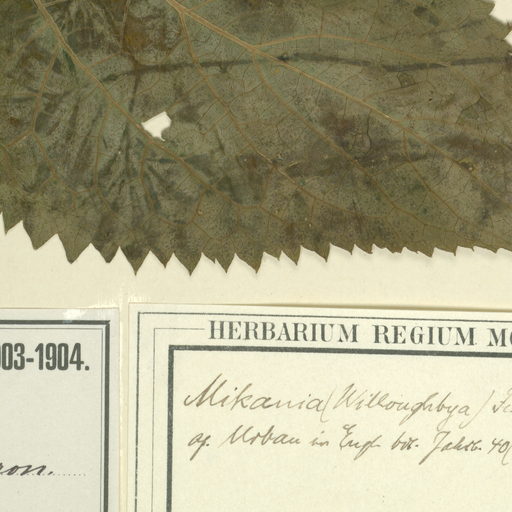 03-1904.
ron.
HERBARIUM REGIUM MO
Mikania (Willoughbya)
ap. Urban in Engl. bot. Jahrb. 40